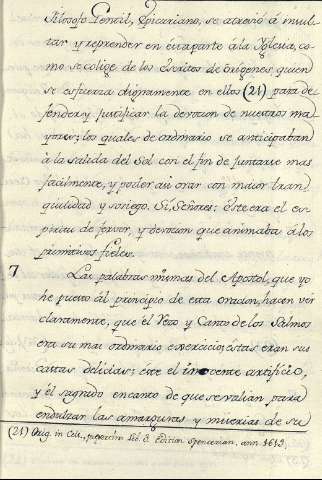 Filosofo Gentil, Epicuriano, se atreviò á insul-
tar y reprender en esta parte á la Yglesia, co-
mo se colige de los escritos de Orígenes quien
se esfuerza dignamente en ellos (21) para de-
fender y justificar la devocion de nuestros ma-
yores; los quales de ordinario se anticipaban
à la salida del Sol con el fin de juntarse mas
facilmente, y poder asi orar con maior tran-
quilidad y sosiego. Si, Señores: Este era el es-
piritu de fervor, y devocion que animaba á los
primitivos fieles.
7 Las palabras mismas del Apostol, que yo
he puesto ál principio de esta oracion, hacen ver
claramente, que él Rezo y Canto de los Salmos
era su mas ordinario exercicio; éstas eran sus
castas delicias; este el inocente artificio,
y él sagrado encanto de que se valian para
endulzar las amarguras y miserias de su
(21) Orig. in Cels. Lib. 8. Edition Spencerian, ann. 1613.